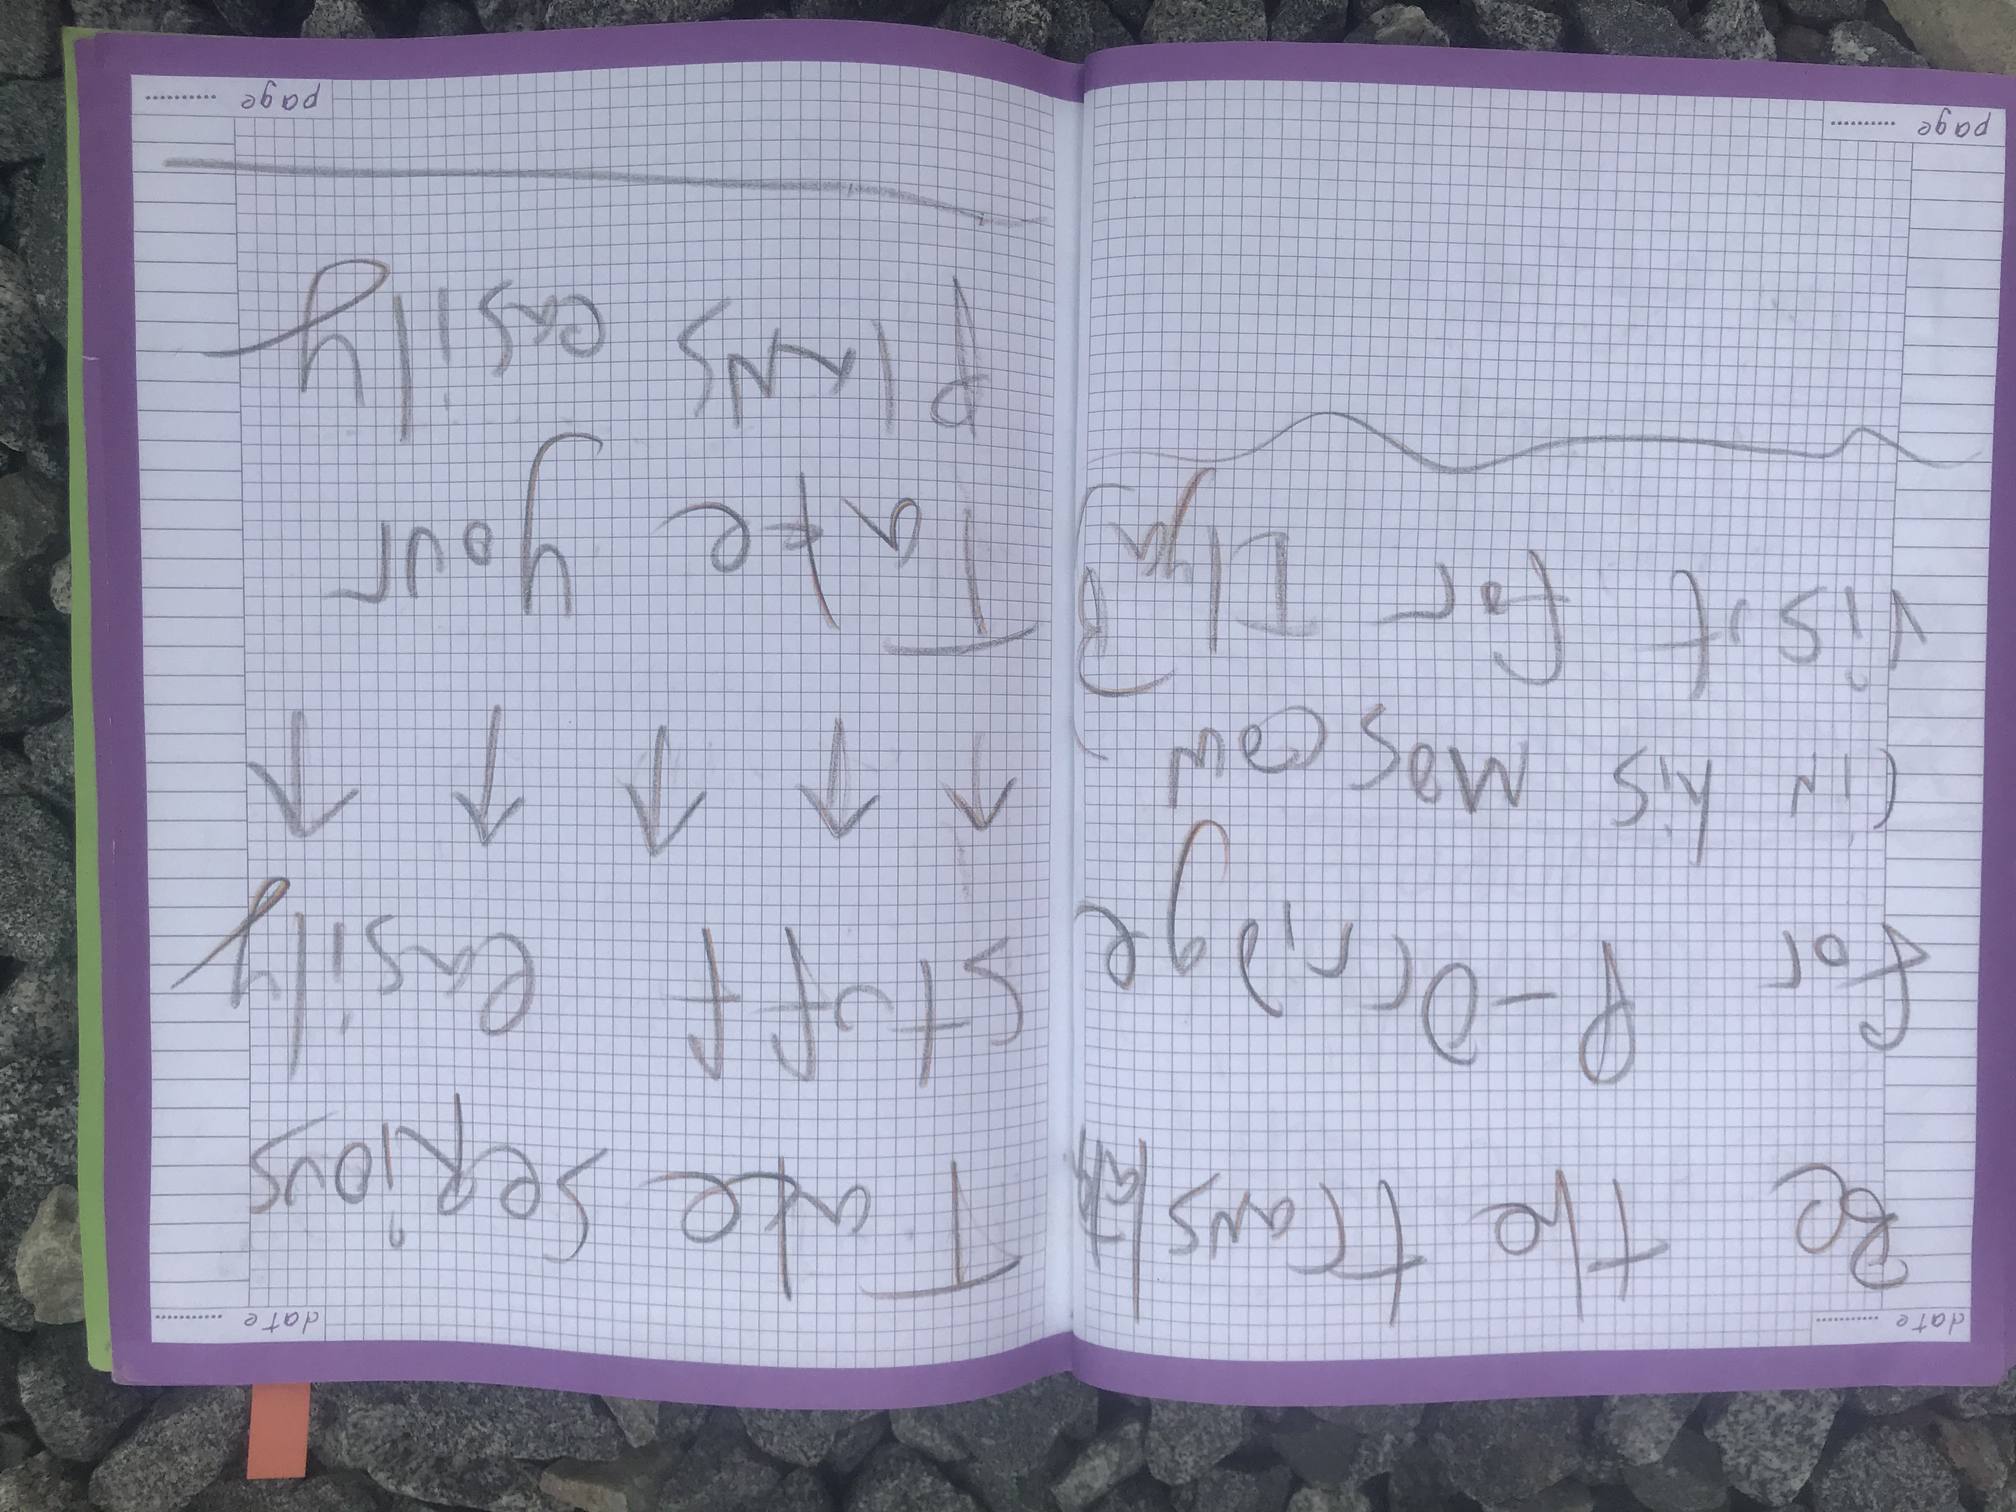 date ..........
Be the translat
for P-Orridge
(in his Moscow
visit for Ilya
page ..........
date ..........
Tate serious
stuff easily
↑ ↑ ↑ ↑ ↑
Tate your
Plans easily
page ..........